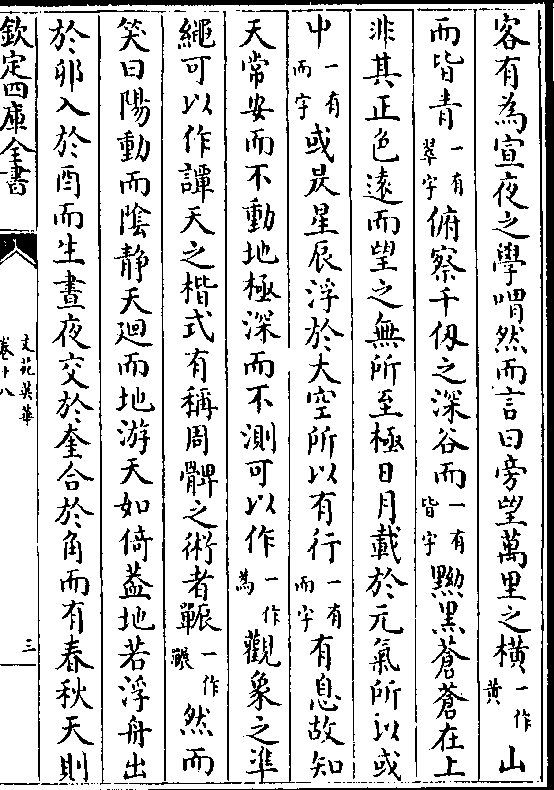 客有為宣夜之學喟然而言曰旁望萬里之橫一作黄山
而皆青一有翠字俯察千仭之深谷而一有皆字黝黒蒼蒼在上
非其正色遠而望之無所至極日月載於元氣所以或
中一有而字或昃星辰浮於大空所以有行一有而字有息故知
天常安而不動地極深而不測可以作一作為觀象之準
繩可以作譚天之楷式有稱周髀之術者囅一作冁然而
笑曰陽動而陰靜天廻而地游天如倚葢地若浮舟出
於夘入於酉而生晝夜交於奎合於角而有春秋天則
欽定四庫全書
文苑英華
卷十八
三